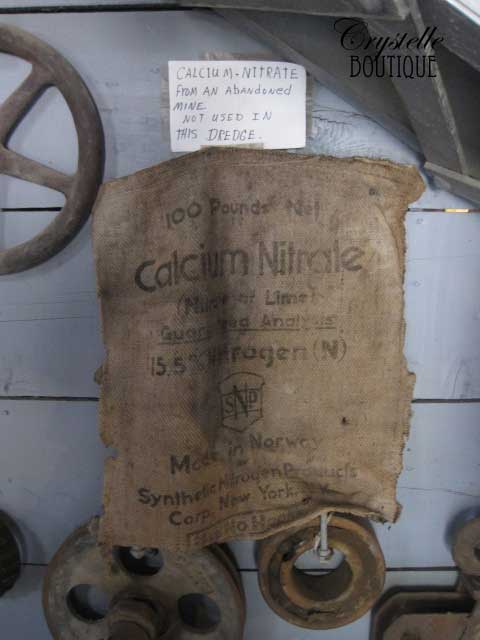 Crystelle
BOUTIQUE
CALCIUM-NITRATE
FROM AN ABANDONED
MINE
NOT USED IN
THIS DREDGE.
100 Pounds Net
Calcium Nitrate
of Lime
Analysis
15.5% Nitrogen (N)
SND
Made in Norway
Synthetic Nitrogen Products
Corp. New York
No